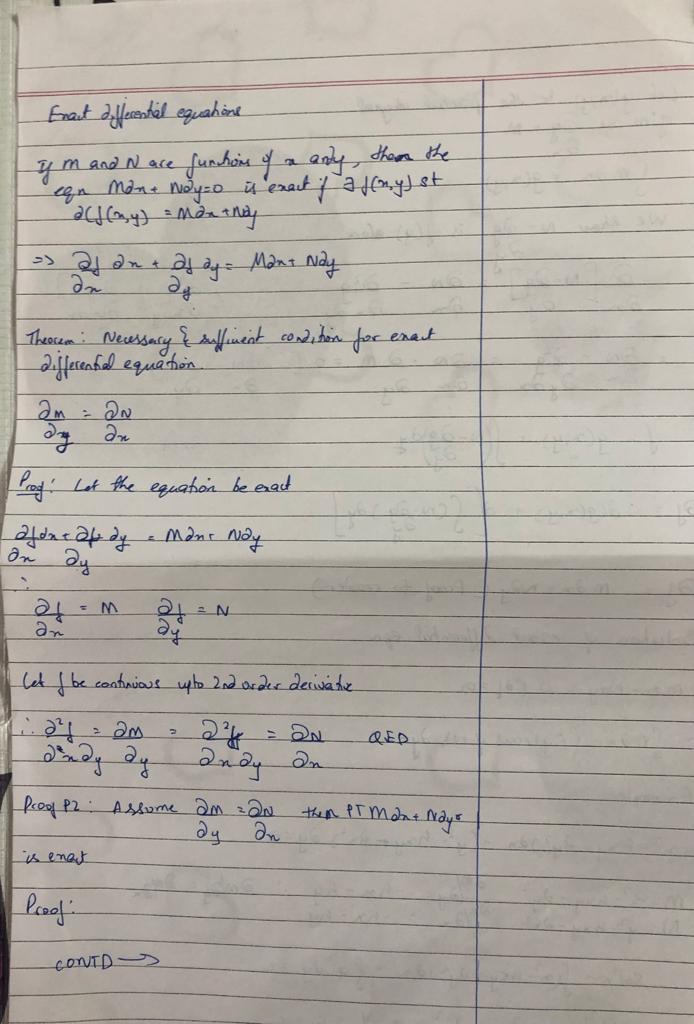 Exact differential equations
If M and N are functions of x and y, then the
eqn M∂x + N∂y=0 is exact if ∃ f(x,y) st
∂(f(x,y) = M∂x + N∂y
=> ∂f/∂x ∂x + ∂f/∂y ∂y = M∂x + N∂y
Theorem: Necessary & sufficient condition for exact
differential equation.
∂M/∂y = ∂N/∂x
Proof: Let the equation be exact
∂f/∂x ∂x + ∂f/∂y ∂y = M∂x + N∂y
∴
∂f/∂x = M ∂f/∂y = N
Let f be continuous upto 2nd order derivative
∴ ∂²f/∂x∂y = ∂M/∂y = ∂²f/∂x∂y = ∂N/∂x QED
Proof P2: Assume ∂M/∂y = ∂N/∂x then PT M∂x + N∂y=
is exact
Proof:
CONTD →